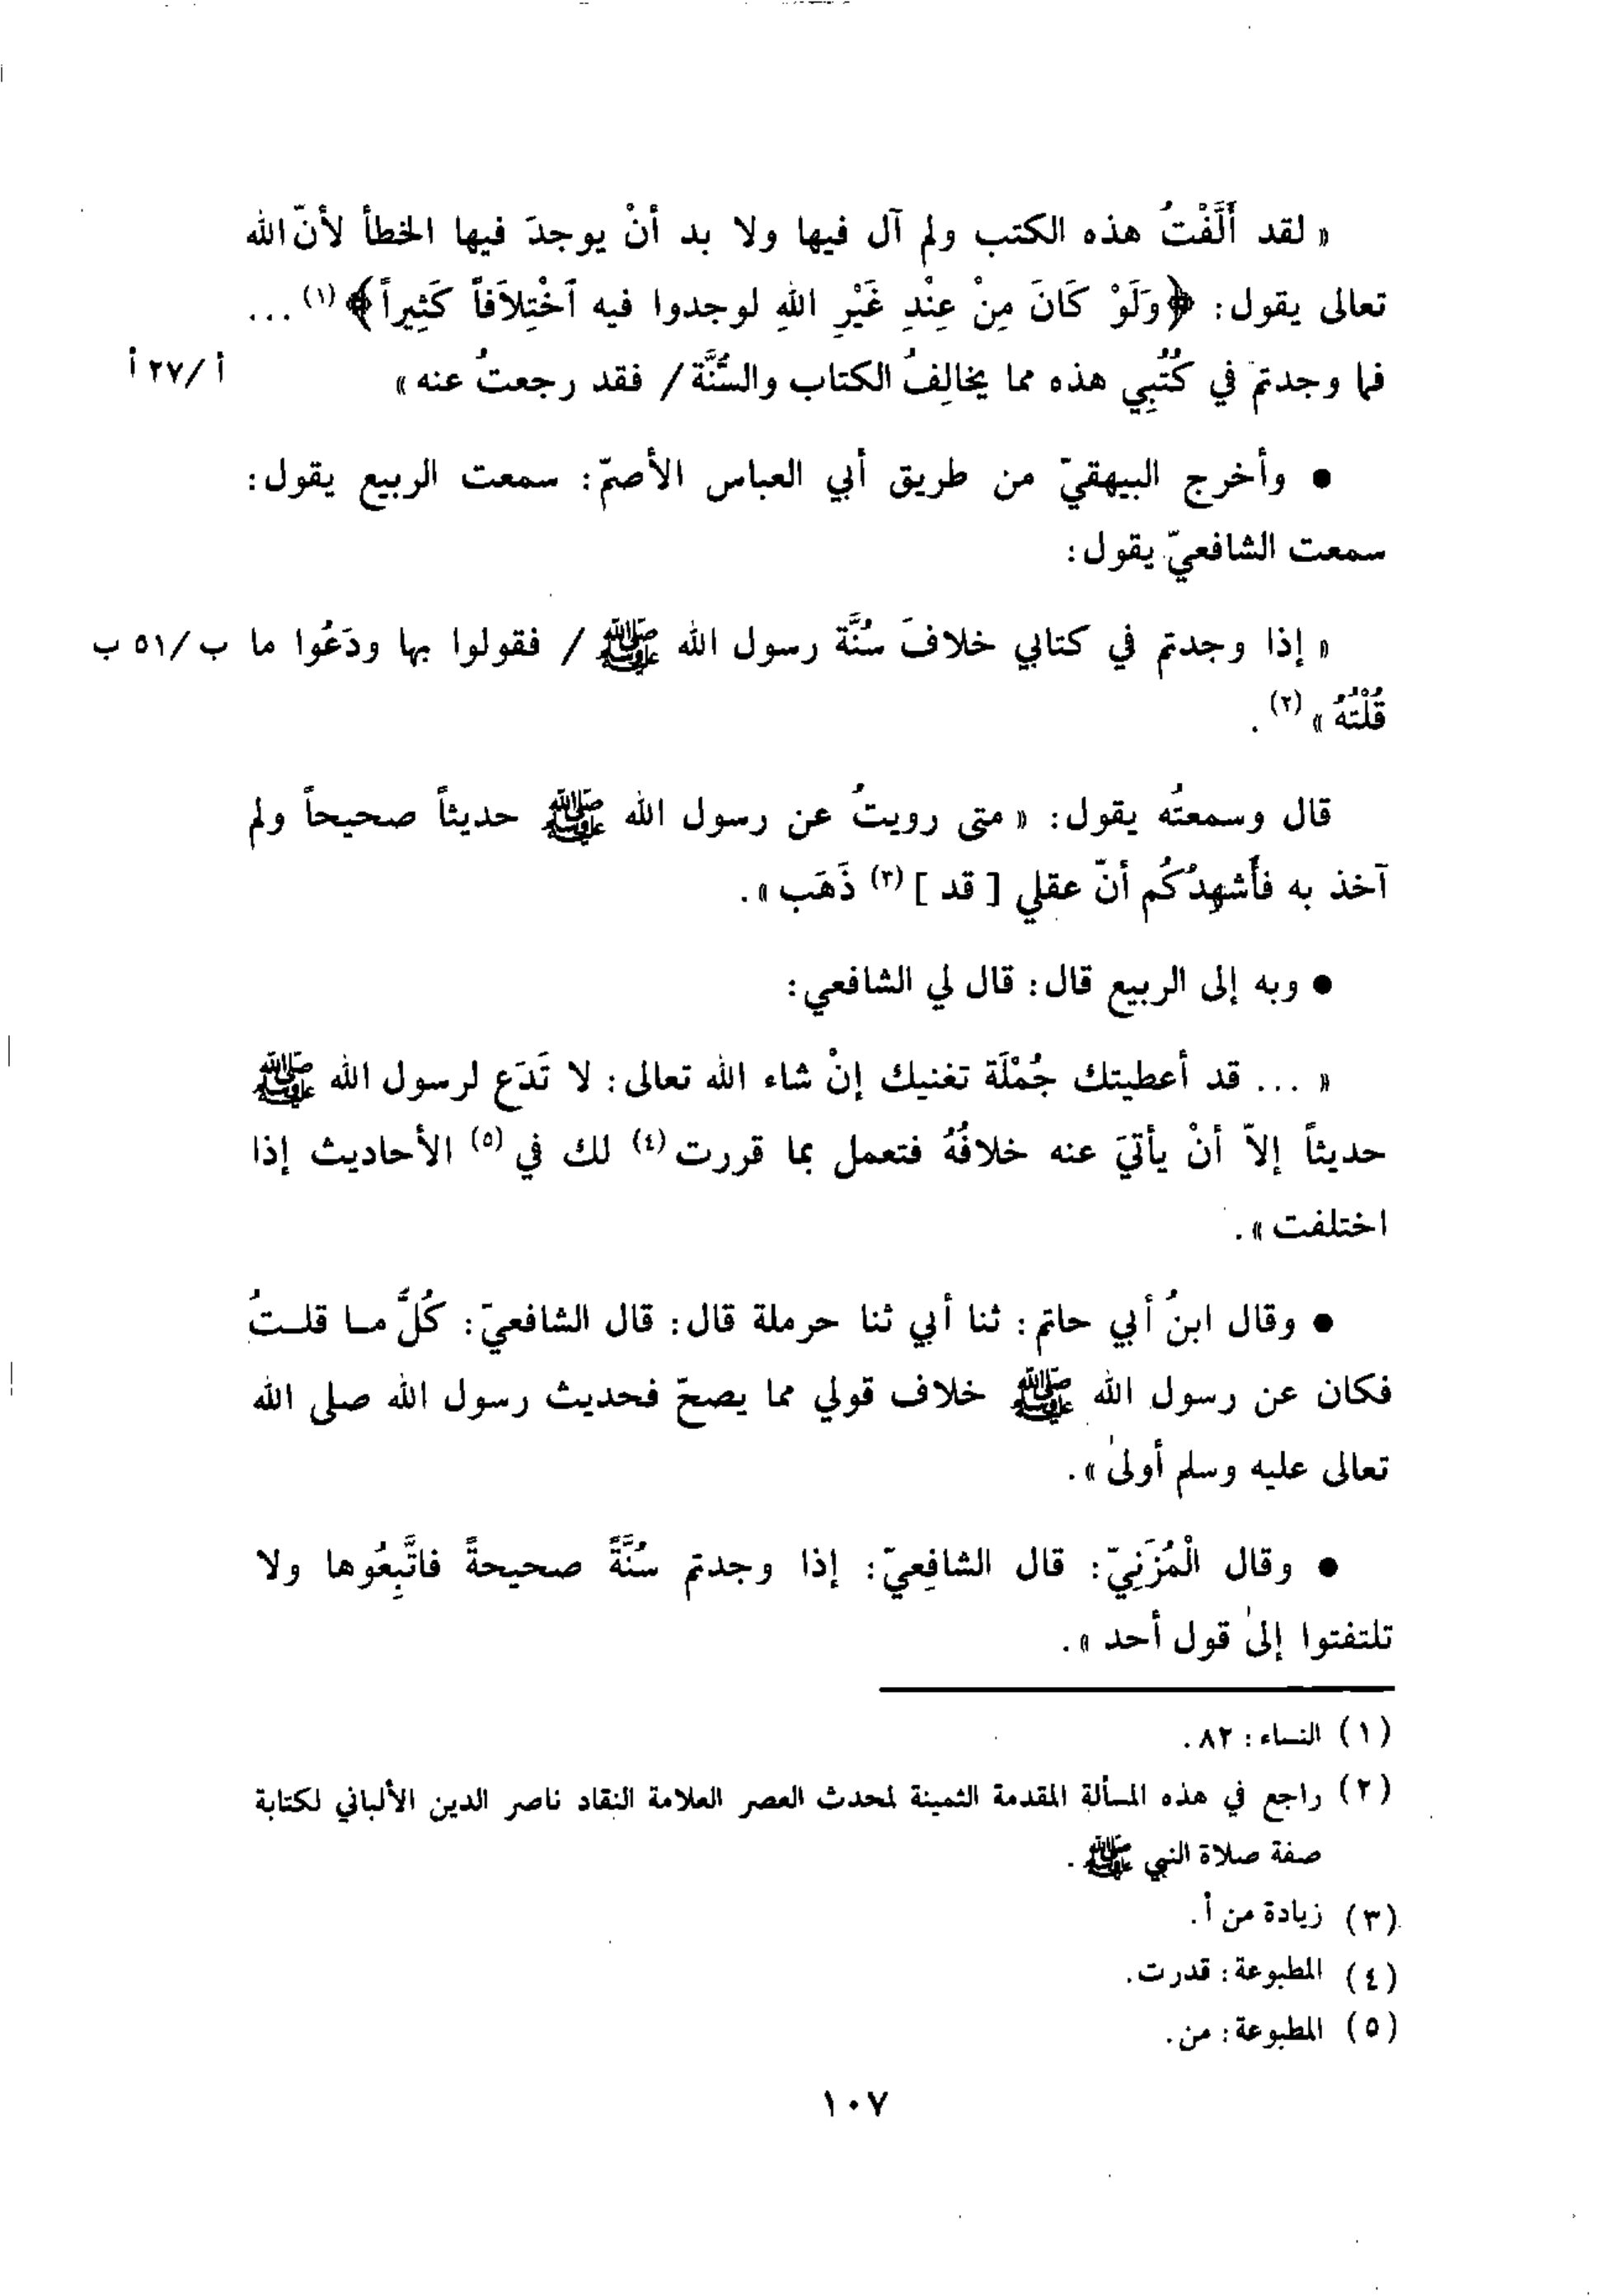 « لقد أَلَّفْتُ هذه الكتب ولم آل فيها ولا بد أنْ يوجدَ فيها الخطأ لأنّ الله
تعالى يقول: ﴿وَلَوْ كَانَ مِنْ عِنْدِ غَيْرِ اللهِ لوجدوا فيه آخْتِلاَفاً كَثِيراً﴾ (١) ...
فما وجدتم في كُتُبِي هذه مما يخالِفُ الكتاب والسُّنَّة / فقد رجعتُ عنه » أ /٢٧ أ
● وأخرج البيهقيّ من طريق أبي العباس الأصمّ: سمعت الربيع يقول:
سمعت الشافعيّ يقول:
« إذا وجدتم في كتابي خلافَ سُنَّة رسول الله ﷺ / فقولوا بها ودَعُوا ما ب /٥١ ب
قُلْتُهُ » (٢).
قال وسمعتُه يقول: « متى رويتُ عن رسول الله ﷺ حديثاً صحيحاً ولم
آخذ به فأَشهِدُكُم أنّ عقلي [ قد ] (٣) ذَهَب ».
● وبه إلى الربيع قال: قال لي الشافعي:
« ... قد أعطيتك جُمْلَة تغنيك إنْ شاء الله تعالى: لا تَدَع لرسول الله ﷺ
حديثاً إلاّ أنْ يأتيَ عنه خلافُهُ فتعمل بما قررت (٤) لك في (٥) الأحاديث إذا
اختلفت ».
● وقال ابنُ أبي حاتم: ثنا أبي ثنا حرملة قال: قال الشافعيّ: كُلُّ مـا قلـتُ
فكان عن رسول الله ﷺ خلاف قولي مما يصحّ فحديث رسول الله صلى الله
تعالى عليه وسلم أولىٰ ».
● وقال الْمُزَنِيّ: قال الشافِعيّ: إذا وجدتم سُنَّةً صحيحةً فاتَّبِعُوها ولا
تلتفتوا إلىٰ قول أحد ».
(١) النساء: ٨٢.
(٢) راجع في هذه المسألة المقدمة الثمينة لمحدث العصر العلامة النقاد ناصر الدين الألباني لكتابة
صفة صلاة النبي ﷺ.
(٣) زيادة من أ.
(٤) المطبوعة: قدرت.
(٥) المطبوعة: من.
١٠٧